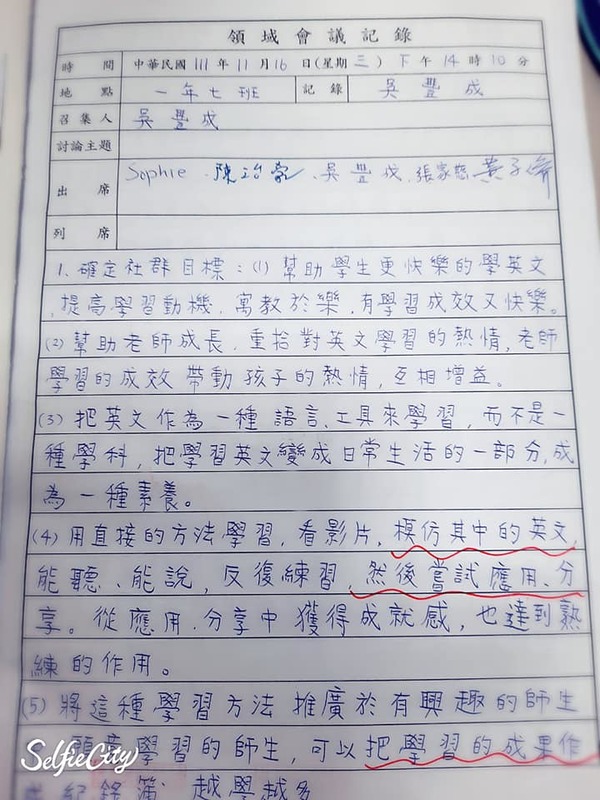 領域會議記錄
時間 中華民國 111 年 11 月 16 日(星期 三 ) 下 午 14 時 10 分
地點 一年七班 記錄 吳豐成
召集人 吳豐成
討論主題
出席 Sophie、陳治豪、吳豐成、張家慈
列席
1、確定社群目標:(1) 幫助學生更快樂的學英文
,提高學習動機,寓教於樂,有學習成效又快樂。
(2) 幫助老師成長,重拾對英文學習的熱情,老師
學習的成效帶動孩子的熱情,互相增益。
(3) 把英文作為一種語言、工具來學習,而不是一
種學科,把學習英文變成日常生活的一部分,成
為一種素養。
(4) 用直接的方法學習,看影片,模仿其中的英文,
能聽、能說,反復練習,然後嘗試應用、分
享。從應用、分享中獲得成就感,也達到熟
練的作用。
(5) 將這種學習方法推廣於有興趣的師生
學習的師生,可以把學習的成果作
紀錄簿 越學越多
SelfieCity